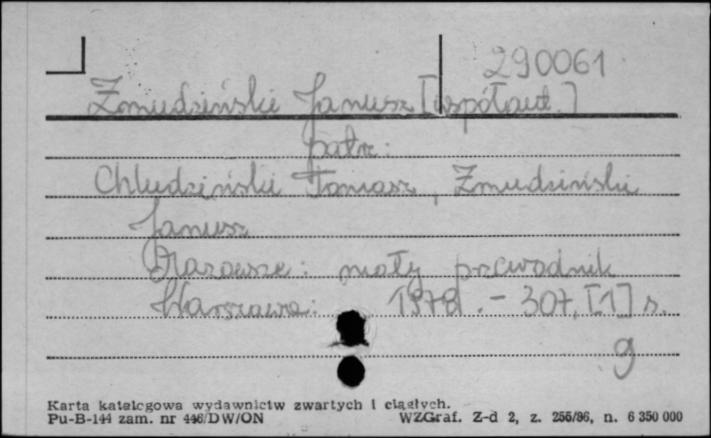 290061
Żmudziński Janusz [współaut.]
patrz:
Chludziński Tomasz, Żmudziński
Janusz
Mazowsze: mały przewodnik
Warszawa: 1978. - 307, [1] s.
g
Karta katalogowa wydawnictw zwartych i ciągłych.
Pu-B-144 zam. nr 446/DW/ON WZGraf. Z-d 2, z. 256/86, n. 6 350 000